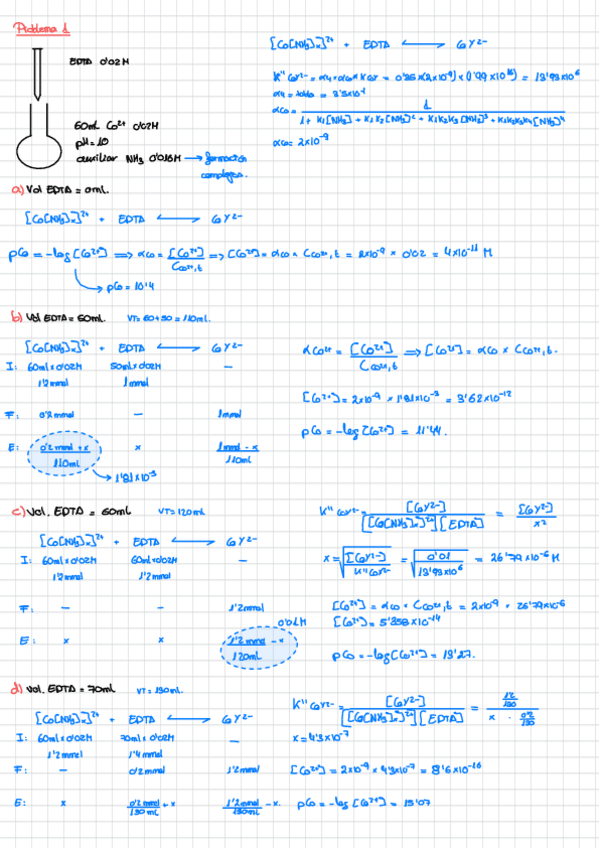 Problema 1
EDTA 0'02M
60mL Co²⁺ 0'02M
pH = 10
auxiliar NH₃ 0'016M → formación
complejos.
[Co(NH₃)ₓ]²⁺ + EDTA ⟷ CoY²⁻
K''CoY²⁻ = α₄ · αCo · KCoY = 0'35 (2x10⁻⁹) x (1'99 x10¹⁶) = 13'93 x10⁶
α₄ = tabla = 3'5x10⁻¹
αCo = 1
1 + K₁[NH₃] + K₁K₂[NH₃]² + K₁K₂K₃[NH₃]³ + K₁K₂K₃K₄[NH₃]⁴
αCo = 2x10⁻⁹
a) Vol EDTA = 0mL.
[Co(NH₃)ₓ]²⁺ + EDTA ⟷ CoY²⁻
pCo = -log [Co²⁺] ⟹ αCo = [Co²⁺] / CCo²⁺,t ⟹ [Co²⁺] = αCo x CCo²⁺,t = 2x10⁻⁹ x 0'02 = 4x10⁻¹¹ M
→ pCo = 10'4
b) Vol EDTA = 50mL. VT = 60+50 = 110mL.
[Co(NH₃)ₓ]²⁺ + EDTA ⟷ CoY²⁻
I: 60ml x 0'02M 50ml x 0'02M —
1'2mmol 1mmol
F: 0'2mmol — 1mmol
E: 0'2mmol + x / 110mL x 1mmol - x / 110mL
→ 1'81x10⁻³
αCo²⁺ = [Co²⁺] / CCo²⁺,t ⟹ [Co²⁺] = αCo x CCo²⁺,t.
[Co²⁺] = 2x10⁻⁹ x 1'81x10⁻³ = 3'62x10⁻¹²
pCo = -log [Co²⁺] = 11'44.
c) Vol. EDTA = 60mL VT = 120mL
[Co(NH₃)ₓ]²⁺ + EDTA ⟷ CoY²⁻
I: 60ml x 0'02M 60ml x 0'02M —
1'2mmol 1'2mmol
F: — — 1'2mmol
0'01M
E: x x 1'2mmol - x / 120mL
K''CoY²⁻ = [CoY²⁻] / [Co(NH₃)ₓ]²⁺ [EDTA] = [CoY²⁻] / x²
x = √([CoY²⁻] / K''CoY²⁻) = √(0'01 / 13'93x10⁶) = 26'79x10⁻⁶ M
[Co²⁺] = αCo x CCo²⁺,t = 2x10⁻⁹ · 26'79x10⁻⁶
[Co²⁺] = 5'358x10⁻¹⁴
pCo = -log [Co²⁺] = 13'27.
d) Vol. EDTA = 70mL VT = 130mL.
[Co(NH₃)ₓ]²⁺ + EDTA ⟷ CoY²⁻
I: 60ml x 0'02M 70ml x 0'02M —
1'2mmol 1'4mmol
F: — 0'2mmol 1'2mmol
E: x 0'2mmol / 130mL + x 1'2mmol / 130mL - x.
K''CoY²⁻ = [CoY²⁻] / [Co(NH₃)ₓ]²⁺ [EDTA] = 1'2/130 / x · 0'2/130
x = 4'3x10⁻⁷
[Co²⁺] = 2x10⁻⁹ x 4'3x10⁻⁷ = 8'6x10⁻¹⁶
pCo = -log [Co²⁺] = 15'07